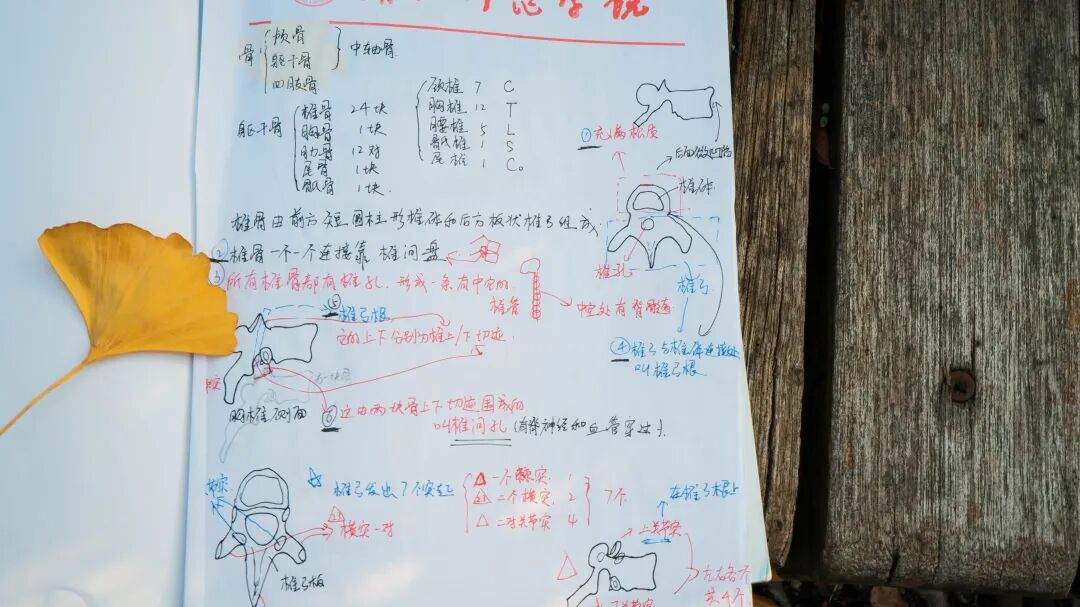 骨
颅骨
躯干骨
四肢骨
中轴骨
躯干骨
椎骨 24块
胸骨 1块
肋骨 12对
尾骨 1块
骶骨 1块
颈椎 7 C
胸椎 12 T
腰椎 5 L
骶椎 1 S
尾椎 1 Co
①充满松质
椎体
椎孔
椎弓
椎骨由前方短圆柱形椎体和后方板状椎弓组成
②椎骨一个一个连接靠椎间盘
③所有椎骨都有椎孔,形成一条有中空的
椎管
中空处有脊髓
④椎弓与椎体连接处
叫椎弓根
⑤
椎弓根
它的上下分别为椎上/下切迹
胸椎侧面
⑥这由两块骨上下切迹围成的
叫椎间孔(有脊神经和血管穿过)
☆椎弓发出7个突起
△一个棘突 1
△二个横突 2
△二对关节突 4
7个
在椎弓根上
棘突
横突一对
椎弓板
上关节突
下关节突
左右各个
共4个